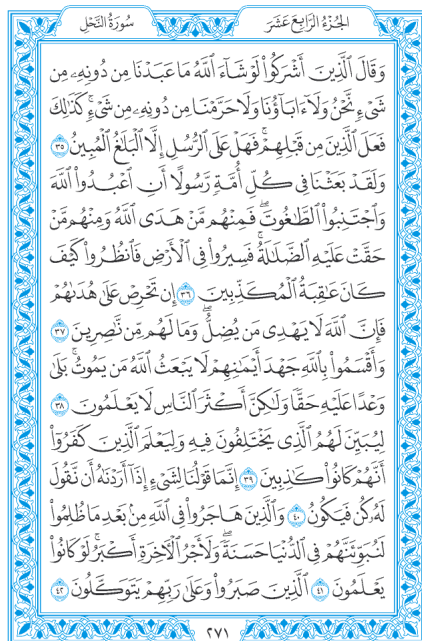 الجُزْءُ الرَّابِعَ عَشَرَ
سُورَةُ النَّحْلِ
وَقَالَ ٱلَّذِينَ أَشْرَكُوا۟ لَوْ شَآءَ ٱللَّهُ مَا عَبَدْنَا مِن دُونِهِۦ مِن
شَىْءٍ نَّحْنُ وَلَآ ءَابَآؤُنَا وَلَا حَرَّمْنَا مِن دُونِهِۦ مِن شَىْءٍ ۚ كَذَٰلِكَ
فَعَلَ ٱلَّذِينَ مِن قَبْلِهِمْ ۚ فَهَلْ عَلَى ٱلرُّسُلِ إِلَّا ٱلْبَلَٰغُ ٱلْمُبِينُ ٣٥
وَلَقَدْ بَعَثْنَا فِى كُلِّ أُمَّةٍ رَّسُولًا أَنِ ٱعْبُدُوا۟ ٱللَّهَ
وَٱجْتَنِبُوا۟ ٱلطَّٰغُوتَ ۖ فَمِنْهُم مَّنْ هَدَى ٱللَّهُ وَمِنْهُم مَّنْ
حَقَّتْ عَلَيْهِ ٱلضَّلَٰلَةُ ۚ فَسِيرُوا۟ فِى ٱلْأَرْضِ فَٱنظُرُوا۟ كَيْفَ
كَانَ عَٰقِبَةُ ٱلْمُكَذِّبِينَ ٣٦ إِن تَحْرِصْ عَلَىٰ هُدَىٰهُمْ
فَإِنَّ ٱللَّهَ لَا يَهْدِى مَن يُضِلُّ ۖ وَمَا لَهُم مِّن نَّٰصِرِينَ ٣٧
وَأَقْسَمُوا۟ بِٱللَّهِ جَهْدَ أَيْمَٰنِهِمْ لَا يَبْعَثُ ٱللَّهُ مَن يَمُوتُ ۚ بَلَىٰ
وَعْدًا عَلَيْهِ حَقًّا وَلَٰكِنَّ أَكْثَرَ ٱلنَّاسِ لَا يَعْلَمُونَ ٣٨
لِيُبَيِّنَ لَهُمُ ٱلَّذِى يَخْتَلِفُونَ فِيهِ وَلِيَعْلَمَ ٱلَّذِينَ كَفَرُوٓا۟
أَنَّهُمْ كَانُوا۟ كَٰذِبِينَ ٣٩ إِنَّمَا قَوْلُنَا لِشَىْءٍ إِذَآ أَرَدْنَٰهُ أَن نَّقُولَ
لَهُۥ كُن فَيَكُونُ ٤٠ وَٱلَّذِينَ هَاجَرُوا۟ فِى ٱللَّهِ مِنۢ بَعْدِ مَا ظُلِمُوا۟
لَنُبَوِّئَنَّهُمْ فِى ٱلدُّنْيَا حَسَنَةً ۖ وَلَأَجْرُ ٱلْءَاخِرَةِ أَكْبَرُ ۚ لَوْ كَانُوا۟
يَعْلَمُونَ ٤١ ٱلَّذِينَ صَبَرُوا۟ وَعَلَىٰ رَبِّهِمْ يَتَوَكَّلُونَ ٤٢
٢٧١